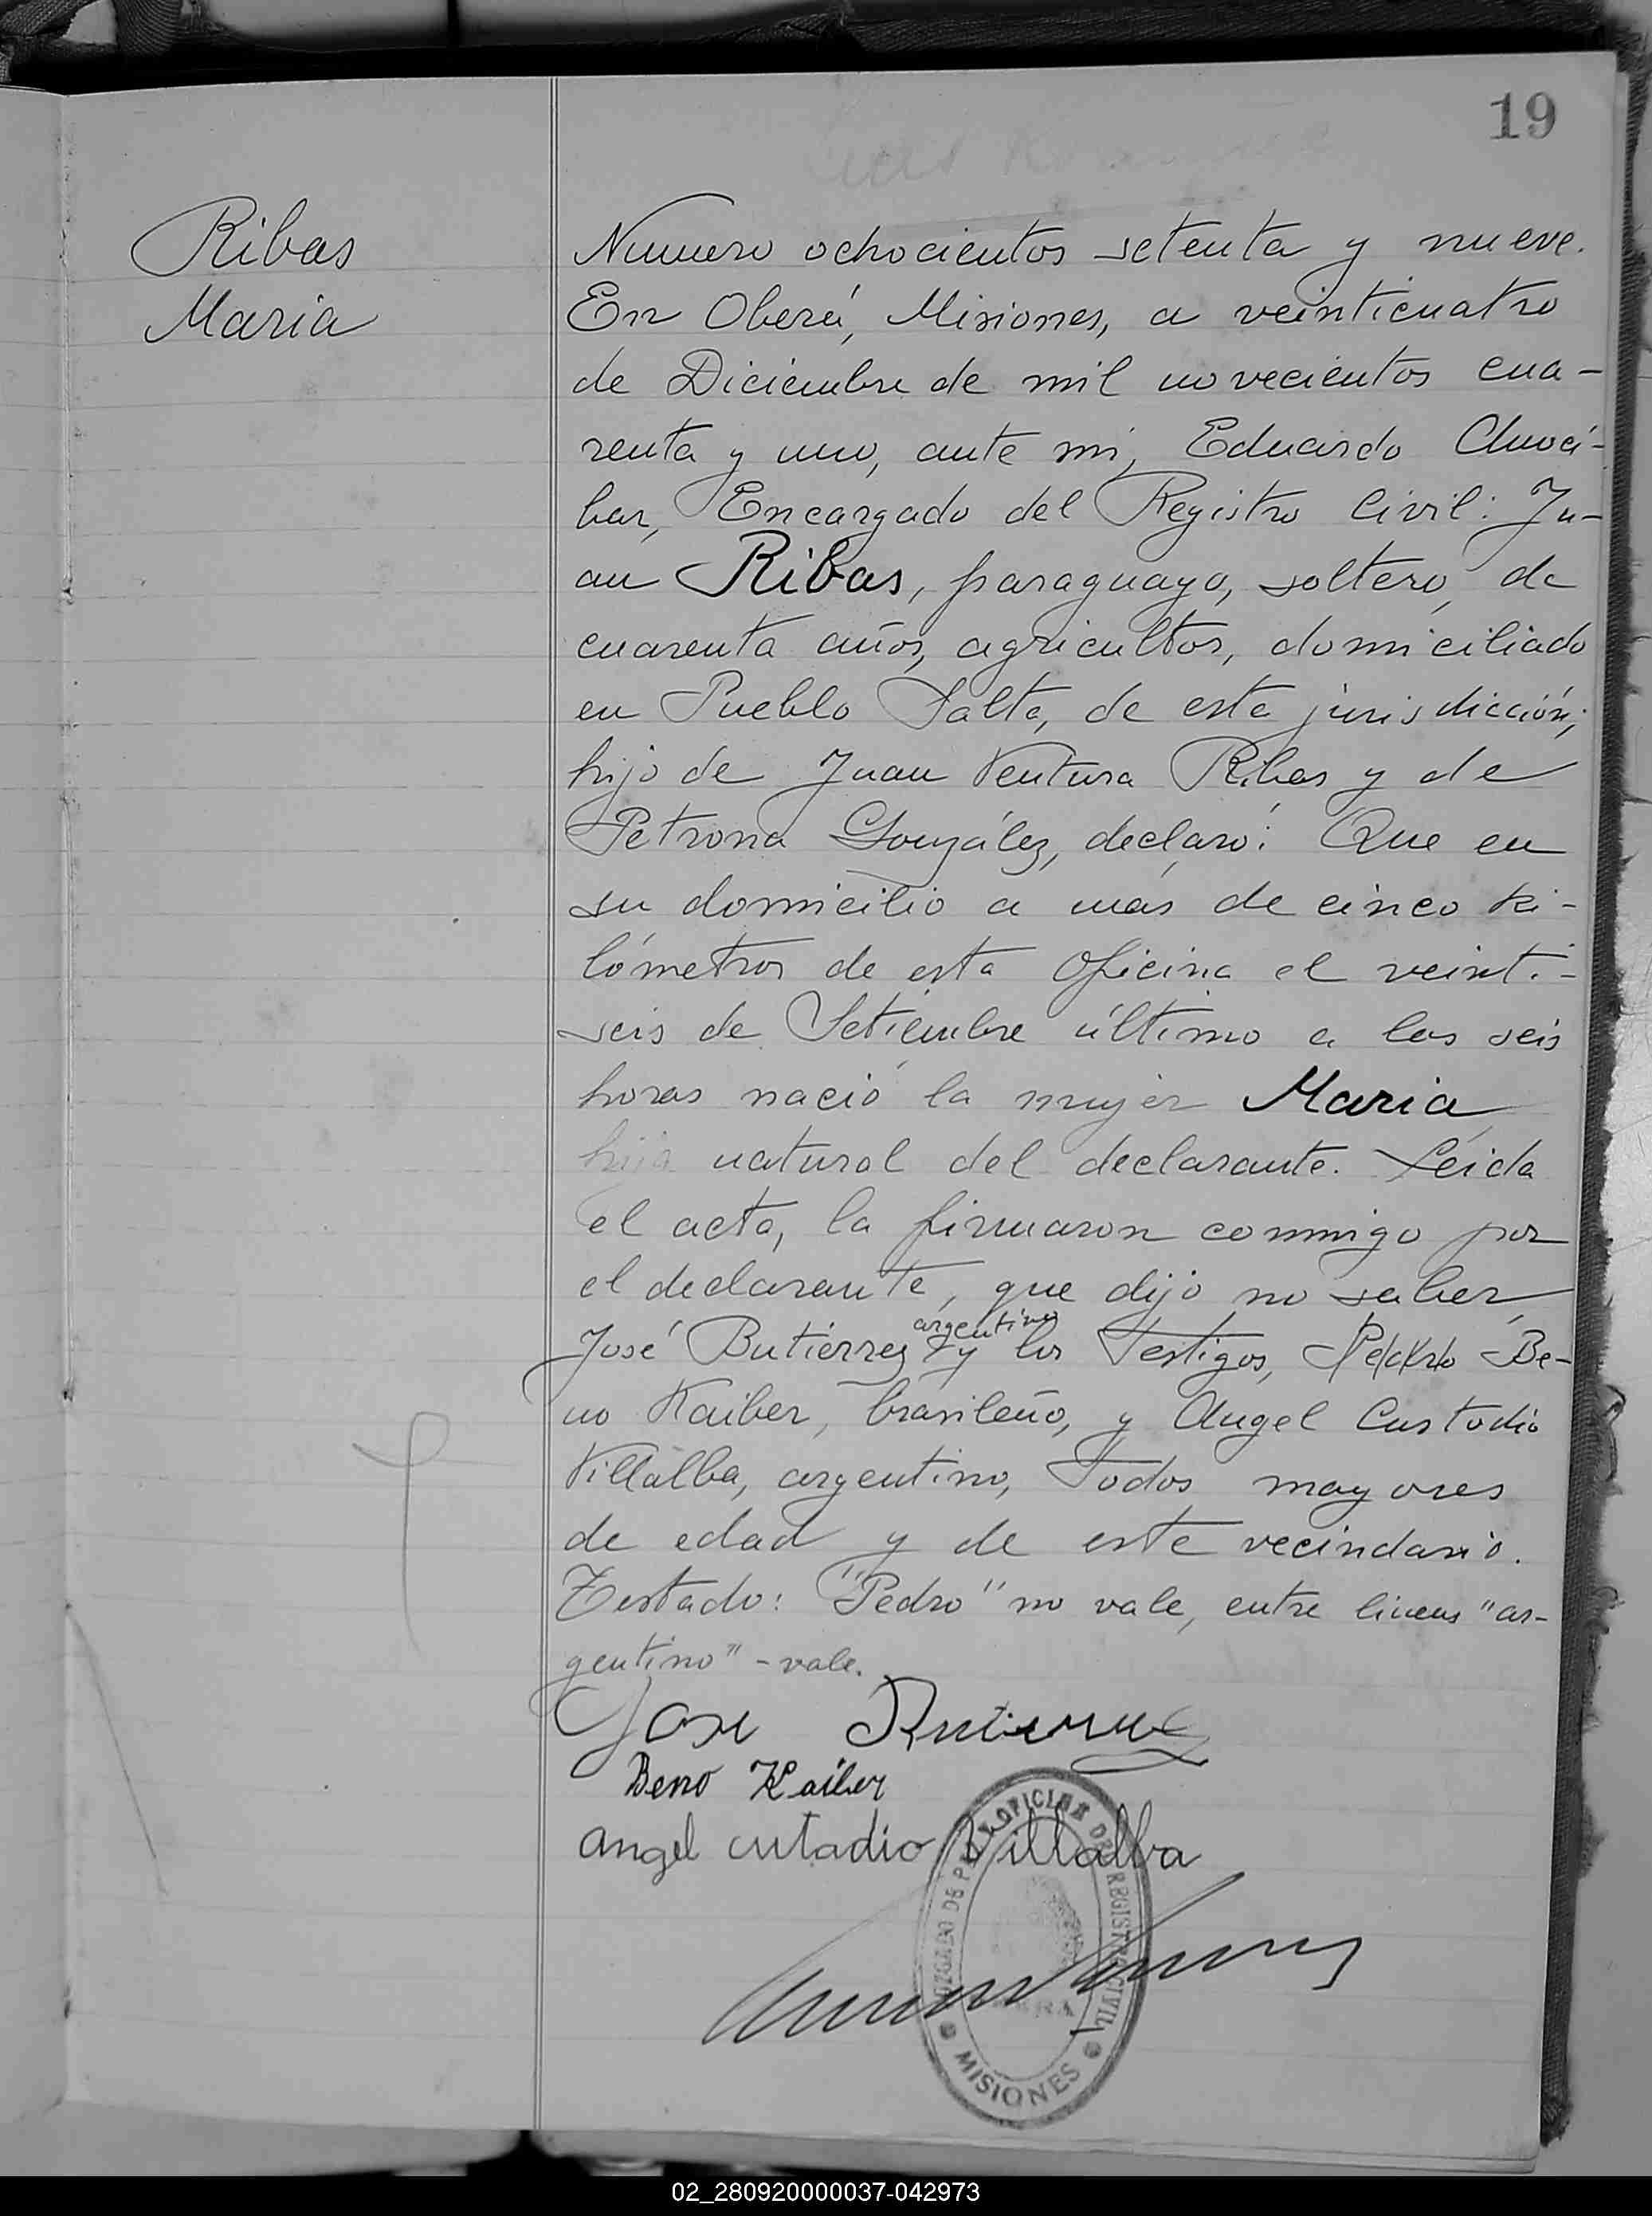 19
Ribas
Maria
Numero ochocientos setenta y nueve.
En Oberá, Misiones, a veinticuatro
de Diciembre de mil novecientos cua-
renta y uno, ante mi, Eduardo
bar, Encargado del Registro Civil: Ju-
an Ribas, paraguayo, soltero, de
cuarenta años, agricultor, domiciliado
en Pueblo Salto, de esta jurisdicción;
hijo de Juan Ventura Ribas y de
Petrona González, declaró: Que en
su domicilio a más de cinco ki-
lómetros de esta Oficina el veinti-
seis de Setiembre último a las seis
horas nació la mujer Maria
hija natural del declarante. Leída
el acta, la firmaron conmigo por
el declarante, que dijo no saber,
argentino
José Butiérrez y los Testigos, Pedro Be-
no Kaiber, brasileño, y Angel Custodio
Villalba, argentino, Todos mayores
de edad y de este vecindario.
Testado: "Pedro" no vale, entre lineas "ar-
gentino" - vale.
Jose
Beno Kaiber
angel cutadio Villalba
JUZGADO DE PAZ Y OFICINA DEL REGISTRO CIVIL
MISIONES
02_280920000037-042973